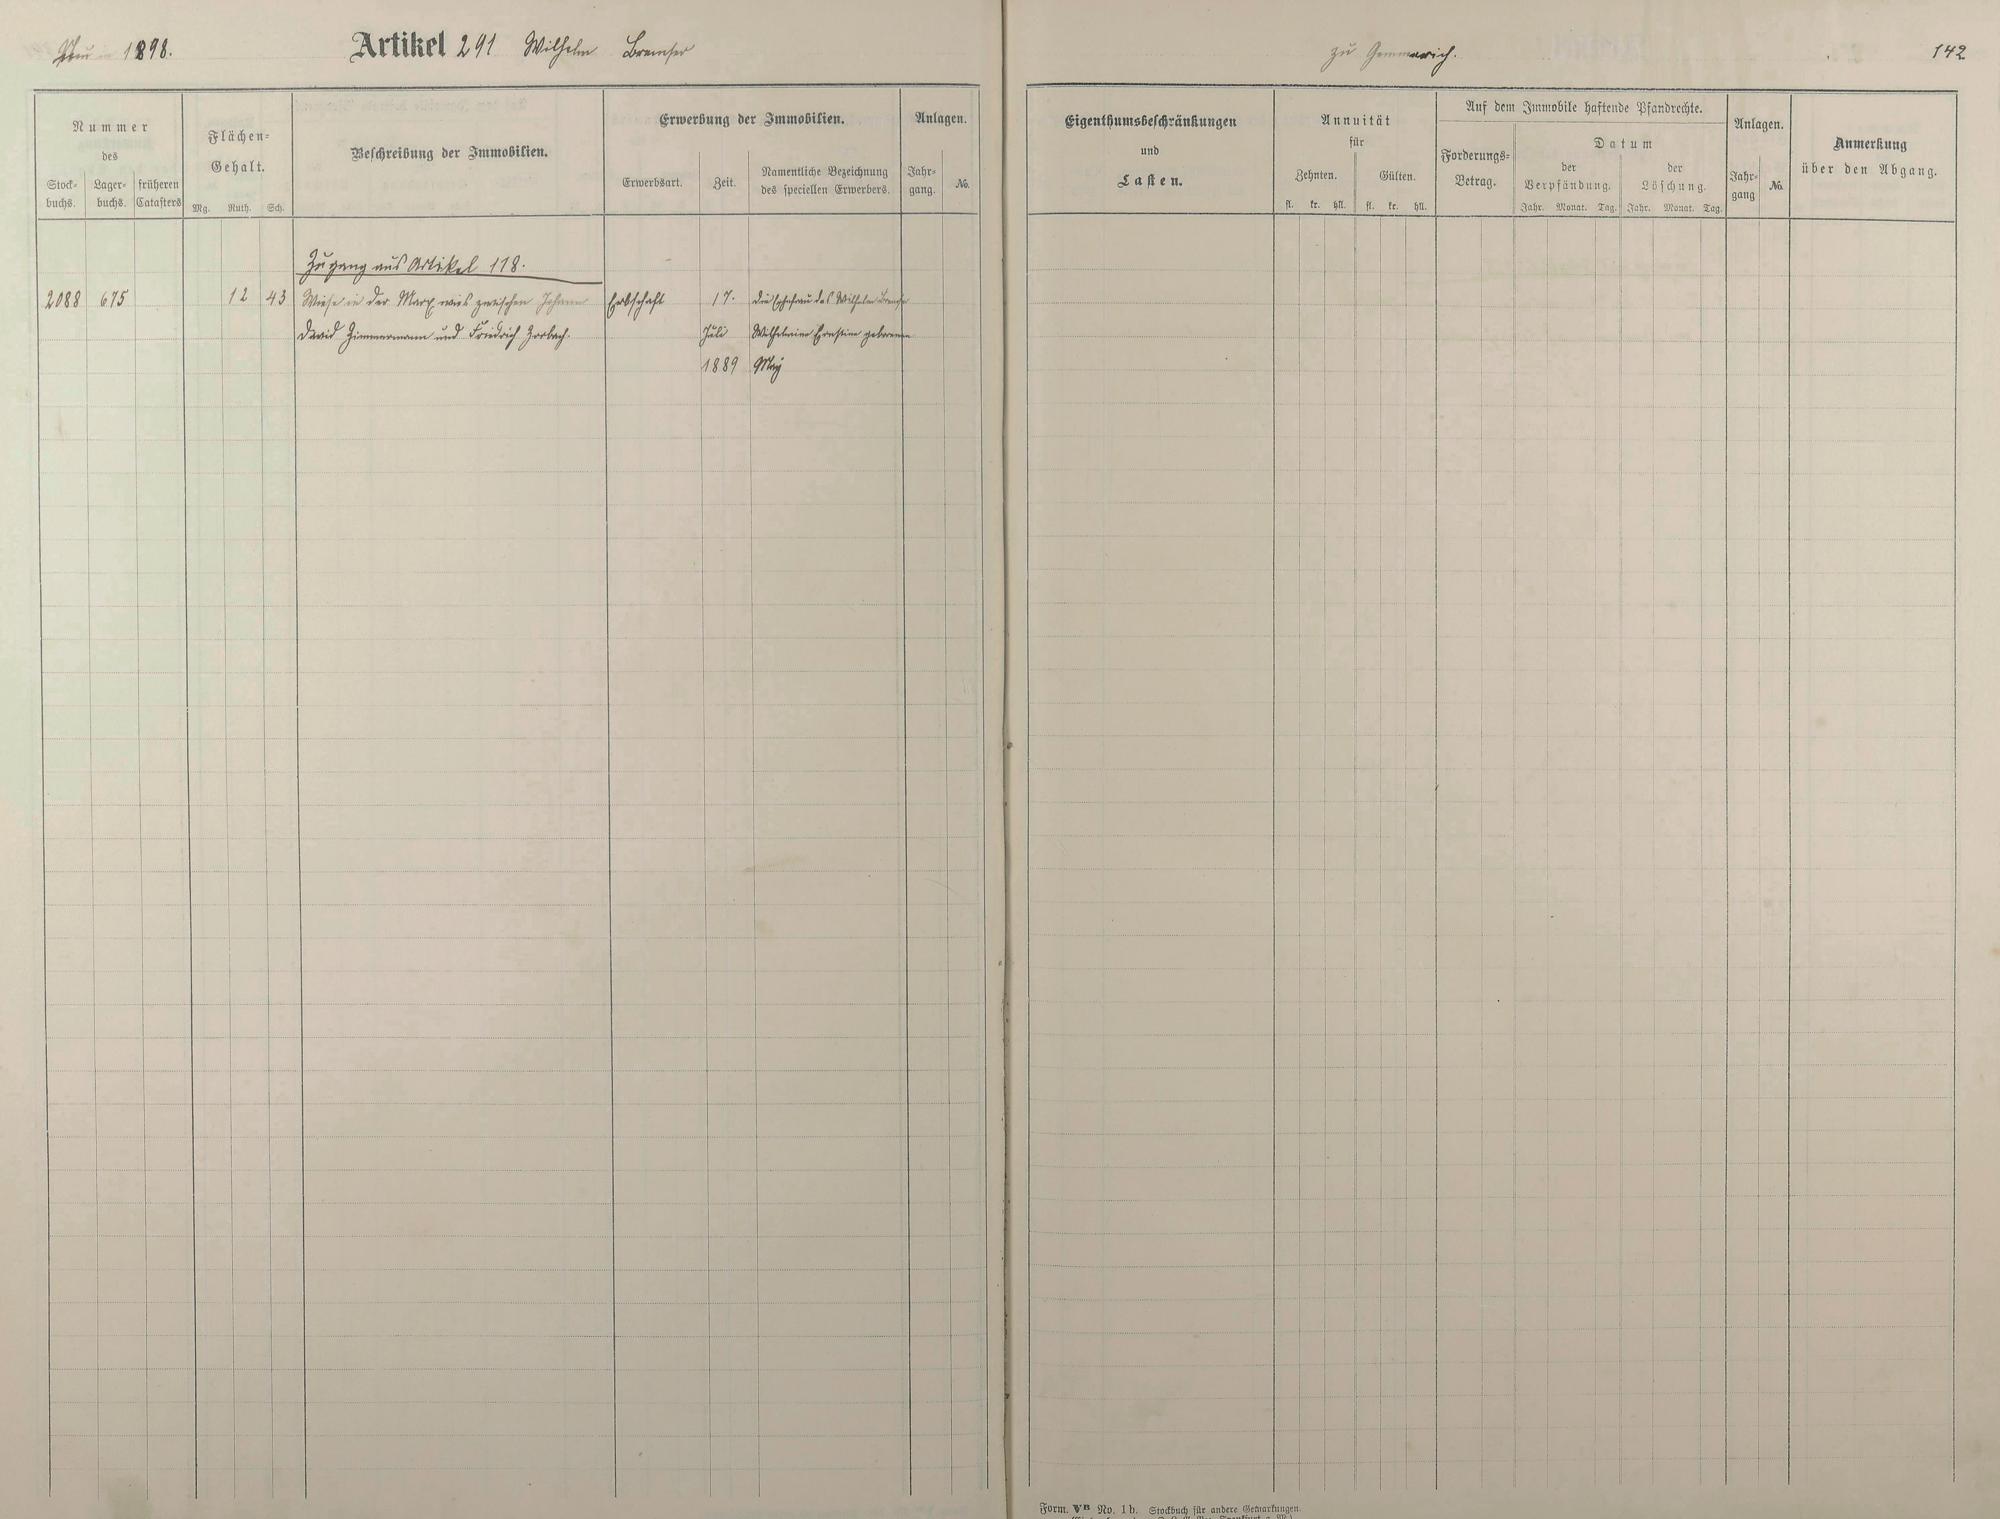 Neu in 1898.
Artikel 291 Wilhelm Bremser
zu Gemmerich.
142
Nummer
des
Stock-
buchs.
Lager-
buchs.
früheren
Catasters
Flächen-
Gehalt.
Mg. Ruth. Sch.
Beschreibung der Immobilien.
Erwerbung der Immobilien.
Erwerbsart.
Zeit.
Namentliche Bezeichnung
des speciellen Erwerbers.
Anlagen.
Jahr-
gang.
No.
Eigenthumsbeschränkungen
und
Lasten.
Annuität
für
Zehnten. Gülten.
fl. kr. hll. fl. kr. hll.
Auf dem Immobile haftende Pfandrechte.
Forderungs-
Betrag.
Datum
der
Verpfändung.
der
Löschung.
Jahr. Monat. Tag. Jahr. Monat. Tag.
Anlagen.
Jahr-
gang
No.
Anmerkung
über den Abgang.
Zugang aus Artikel 118.
2088 675 12 43 Wiese in der Marxwies zwischen Johann Erbschaft 17. die Ehefrau des Wilhelm Bremser
David Zimmermann und Friedrich Zorbach. Juli Wilhelmine Ernstine geborene
1889 May
Form. VB No. 1b. Stockbuch für andere Gemarkungen.